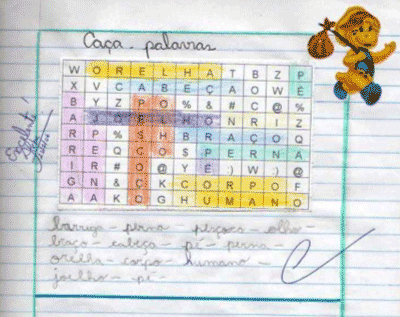 Caça-palavras
W O R E L H A T B Z P
X V C A B E Ç A O W É
B Y Z P O % & # C @ %
A J O E L H O N R I Z
R P % S H B R A Ç O Q
R E Q C O $ P E R N A
I R # O @ Y É :) W :) @
G N & Ç K C O R P O F
A A K O G H U M A N O
barriga - perna - pescoço - olho -
braço - cabeça - pé - perna -
orelha - corpo - humano -
joelho - pé -
Excelente!